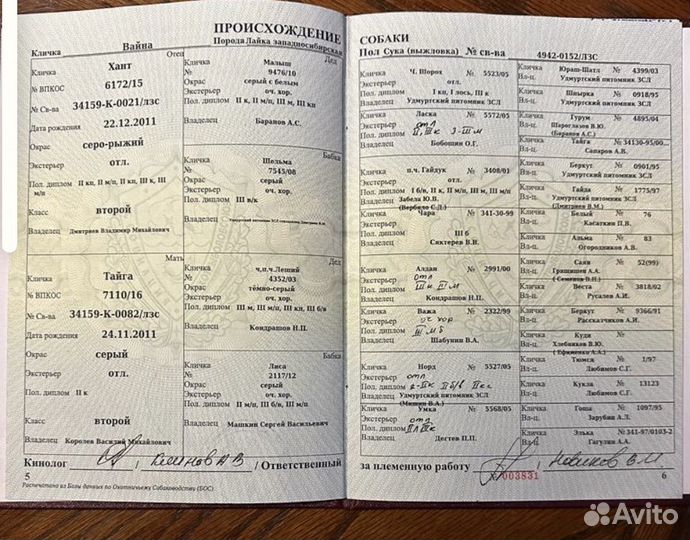 ПРОИСХОЖДЕНИЕ
Кличка Вайна Порода Лайка западносибирская
Отец
Кличка Хант
№ ВПКОС 6172/15
№ Св-ва 34159-К-0021/лзс
Дата рождения 22.12.2011
Окрас серо-рыжий
Экстерьер отл.
Пол. диплом II кп, II м/п, II кп, III к, III м/п
Класс второй
Владелец Дмитриев Владимир Михайлович
Мать
Кличка Тайга
№ ВПКОС 7110/16
№ Св-ва 34159-К-0082/лзс
Дата рождения 24.11.2011
Окрас серый
Экстерьер отл.
Пол. диплом II к
Класс второй
Владелец Королев Василий Михайлович
Дед
Кличка Малыш
№ 9476/10
Окрас серый с белым
Экстерьер оч. хор.
Пол. диплом II к, II м/п, III м, III кп
Владелец Баранов А.С.
Бабка
Кличка Шельма
№ 7545/08
Окрас серый
Экстерьер оч. хор.
Пол. диплом III в/к
Владелец
Дед
Кличка ч.п.ч.Леший
№ 4352/03
Окрас тёмно-серый
Экстерьер оч. хор.
Пол. диплом III м, III м/п, III кп, III б/в
Владелец Кондрашов Н.П.
Бабка
Кличка Лиса
№ 2117/12
Окрас серый
Экстерьер оч. хор.
Пол. диплом II м/п, III б/в, III м/п
Владелец Машкин Сергей Васильевич
Кинолог / Климов А В / Ответственный
5
Распечатано из Базы данных по Охотничьему Собаководству (БОС)
СОБАКИ
Пол Сука (выжловка) № св-ва 4942-0152/ЛЗС
Кличка Ч. Шорох № 5523/05
Экстерьер отл.
Пол. диплом I кп, I лось, III к
Владелец Удмуртский питомник ЗСЛ
Кличка Ласка № 5572/05
Экстерьер отл
Пол. диплом II, III к 3-III м
Владелец Бобошин О.Г.
Кличка п.ч. Гайдук № 3408/01
Экстерьер отл.
Пол. диплом I б/в, II к, II м/п, III м, III м/п
Владелец Забела Ю.В.
(Вербило С.Д.)
Кличка Чара № 341-30-99
Экстерьер
Пол. диплом III б
Владелец Сяктерев В.И.
Кличка Алдан № 2991/00
Экстерьер отл
Пол. диплом III к III м
Владелец Кондрашов Н.П.
Кличка Важа № 2322/99
Экстерьер оч хор
Пол. диплом III м б
Владелец Шабунин В.А.
Кличка Норд № 5527/05
Экстерьер отл
Пол. диплом 2-II к II б/в II кс
Владелец Удмуртский питомник ЗСЛ
(Мишин В.А.)
Кличка Умка № 5568/05
Экстерьер отл
Пол. диплом
Владелец Дегтев П.П.
Кличка Юраш-Шатл № 4399/03
Вл-ц. Удмуртский питомник ЗСЛ
Кличка Шнырка № 0918/95
Вл-ц. Удмуртский питомник ЗСЛ
Кличка Гурум № 4895/04
Вл-ц. Шароглазов В.Ю.
(Баранов А.С.)
Кличка Тайга № 34130-95/00...
Вл-ц. Сапаров А.В.
Кличка Беркут № 0901/95
Вл-ц. Удмуртский питомник ЗСЛ
Кличка Гайда № 1775/97
Вл-ц. Удмуртский питомник ЗСЛ
(Дмитриев В.М.)
Кличка Белый № 76
Вл-ц. Касаткин П.В.
Кличка Альма № 83
Вл-ц. Огородников А.В.
Кличка Саян № 52(99)
Вл-ц. Гришишен А.А.
( Семенов В.Н.)
Кличка Веста № 3818/02
Вл-ц. Русалев А.И.
Кличка Беркут № 9366/91
Вл-ц. Рассказчиков А.И.
Кличка Куди №
Вл-ц. Хлебников В.Ю.
( Ефименко А.А.)
Кличка Тюмсд № 1/97
Вл-ц. Любимов С.Г.
Кличка Кукла № 13123
Вл-ц. Любимов С.Г.
Кличка Гоша № 1097/95
Вл-ц. Зарубин А.Л.
Кличка Элька № 341-97/0103-2
Вл-ц. Гагулин А.А.
за племенную работу / Новиков В М /
№ 003831
6
Avito